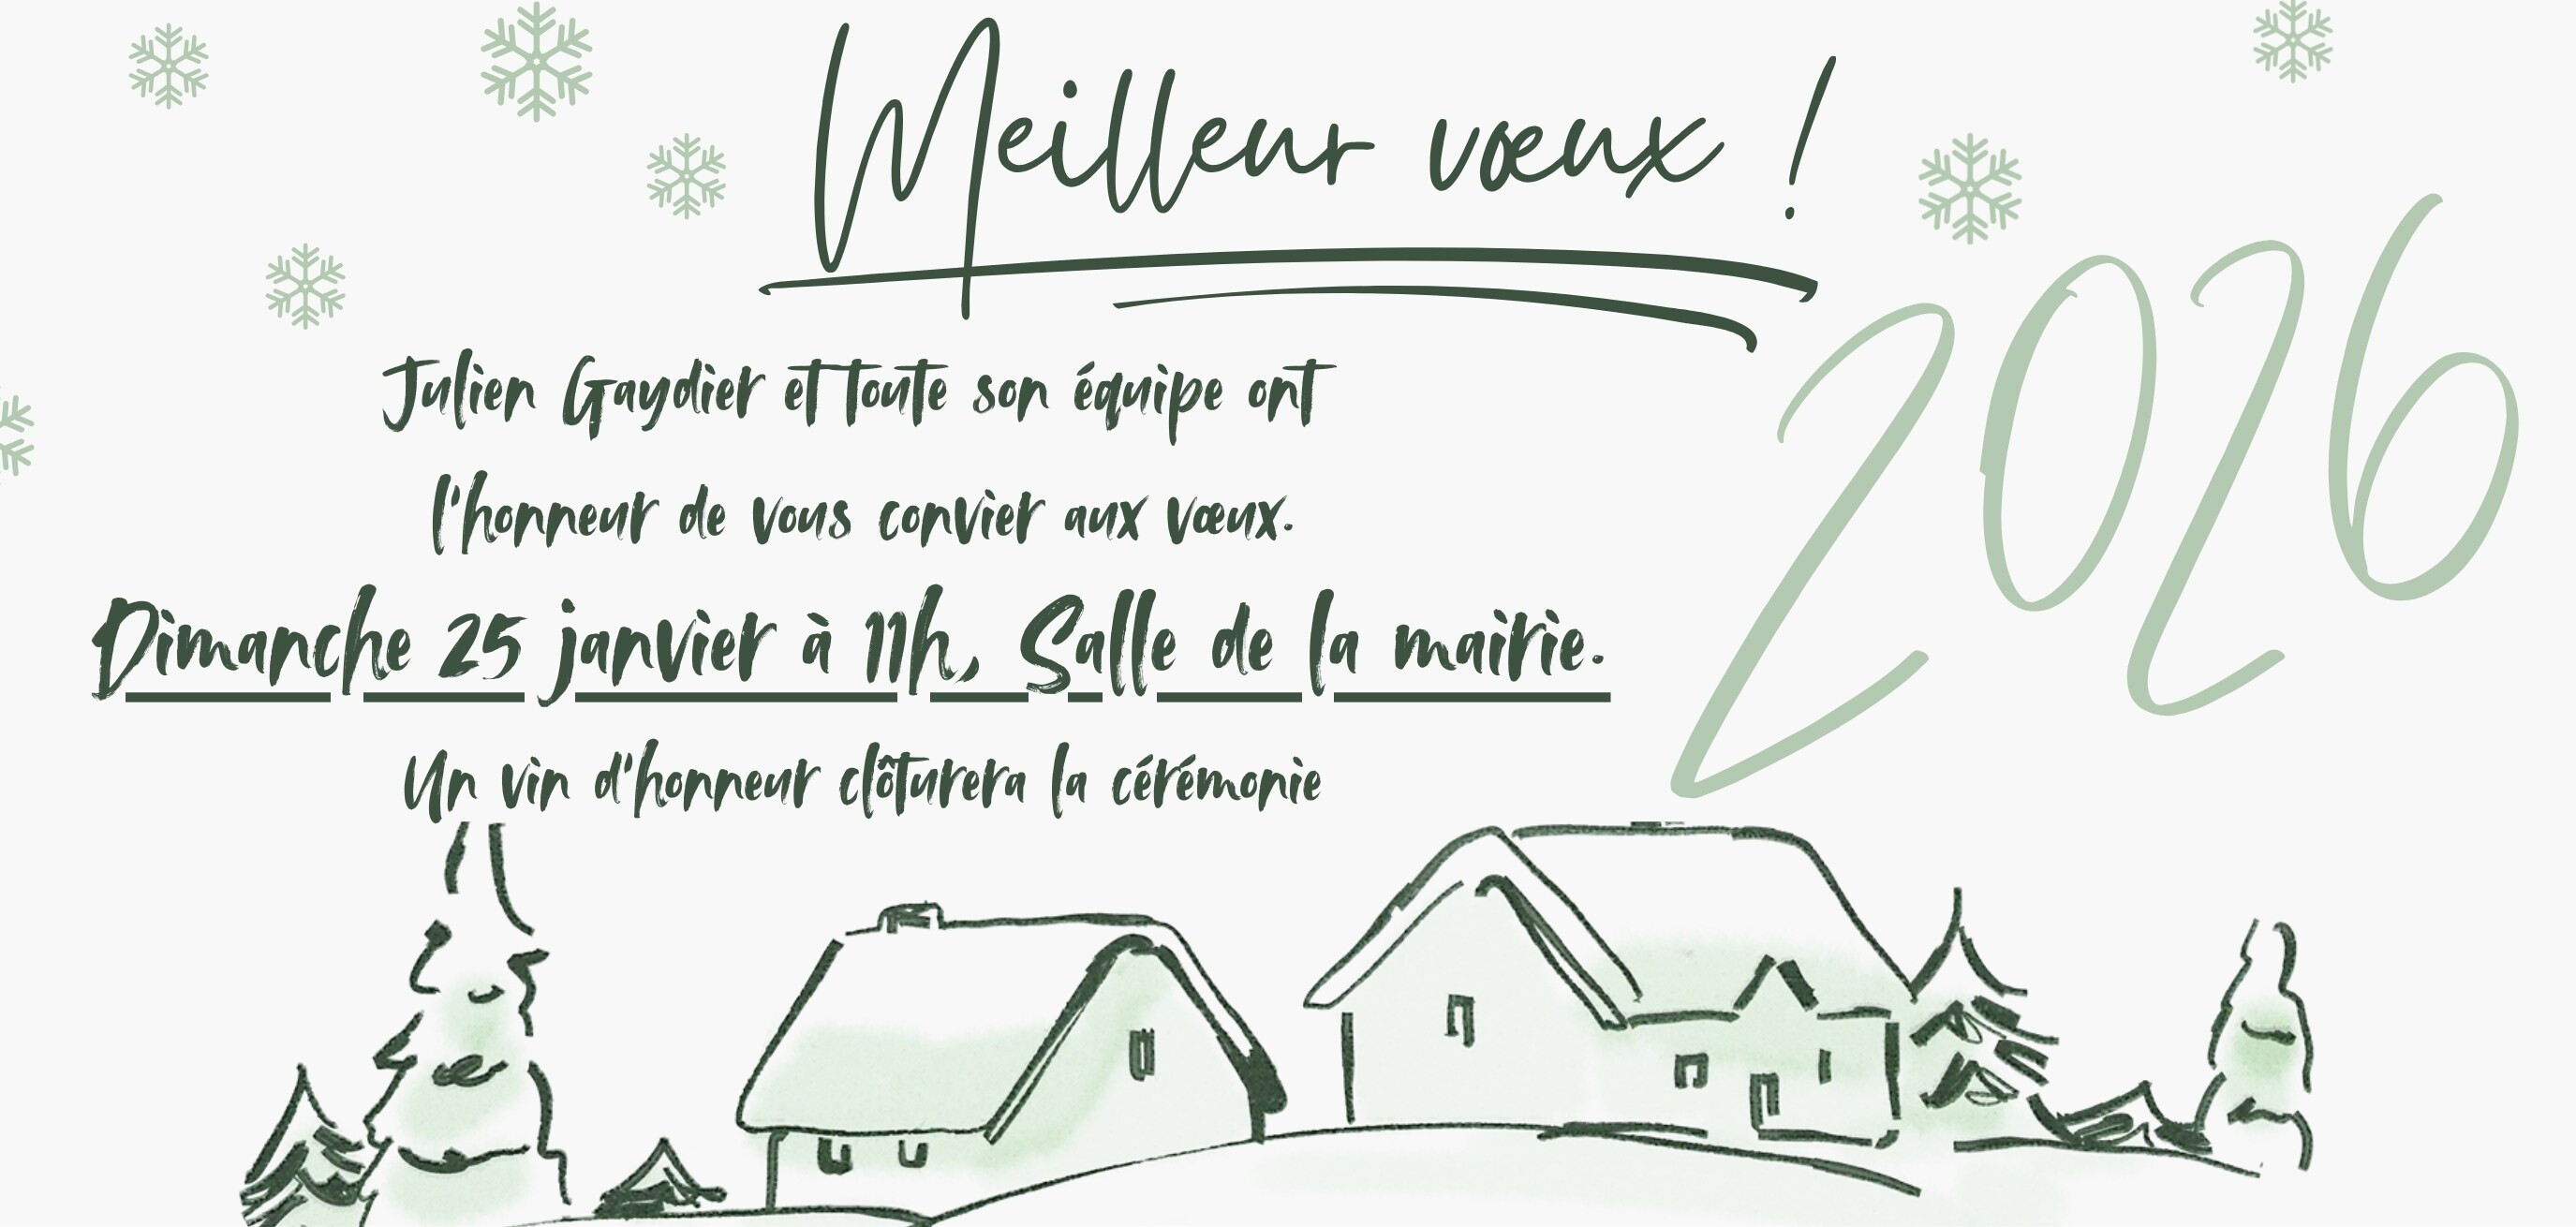 Meilleur vœux !
2026
Julien Gaydier et toute son équipe ont
l'honneur de vous convier aux vœux.
Dimanche 25 janvier à 11h, Salle de la mairie.
Un vin d'honneur clôturera la cérémonie